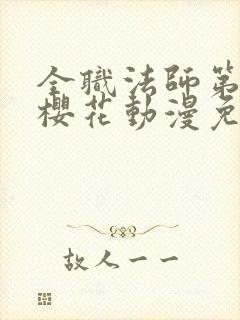 全職法師第
櫻花動漫免
故人一一